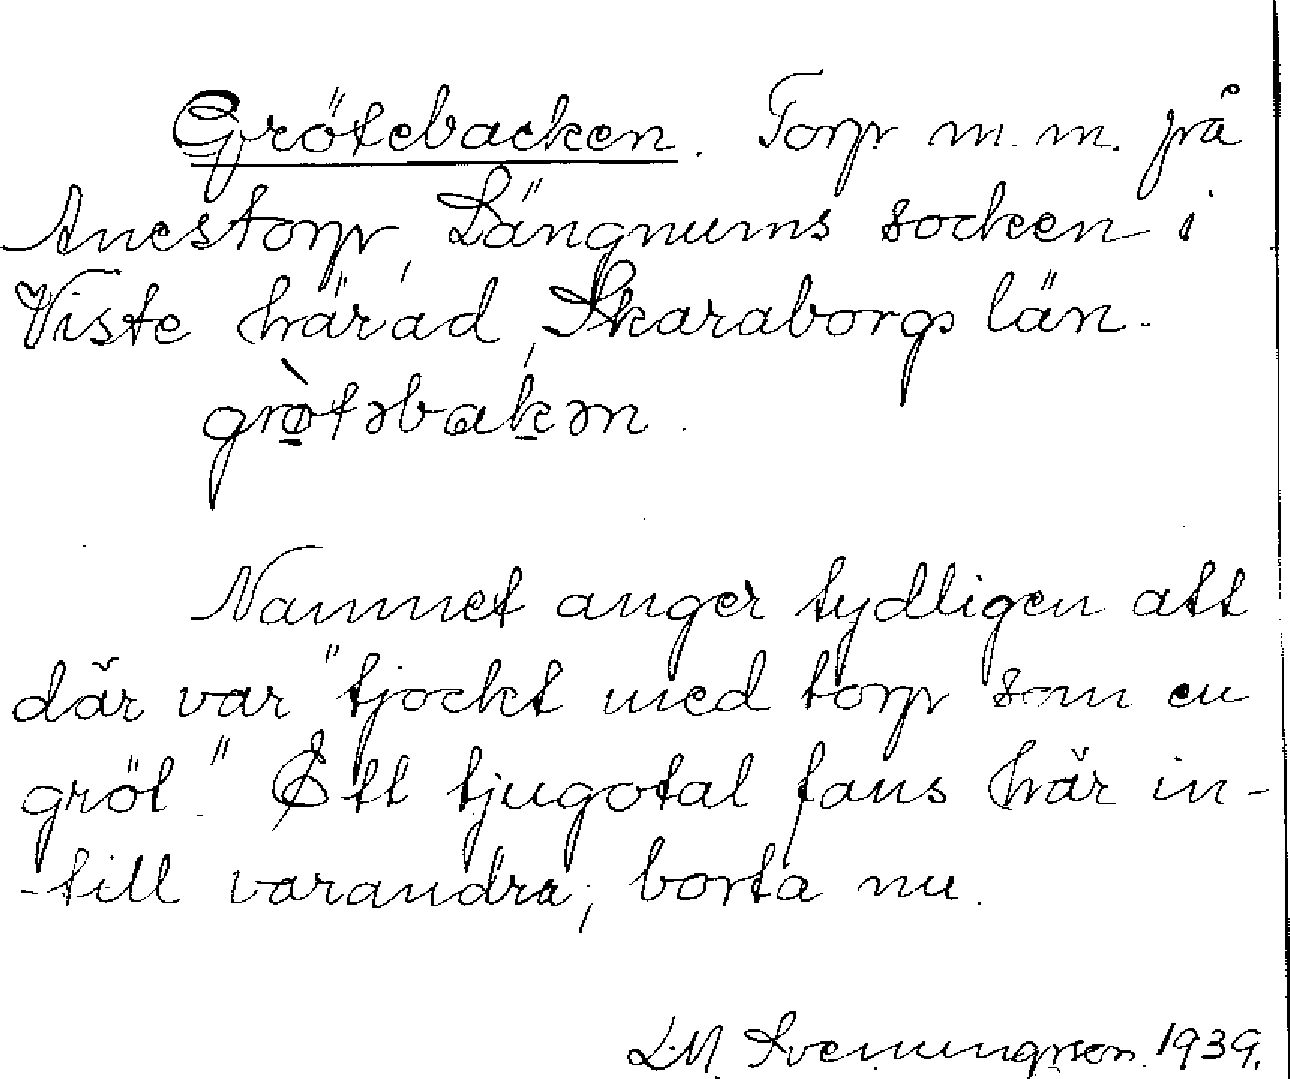 Grötebacken. Torp m.m. på
Anestorp, Längnums socken i
Viste härad, Skaraborgs län.
grø̀təbakən.
Namnet anger tydligen att
där var "tjockt med torp som en
gröt." Ett tjugotal fans här in-
-till varandra, borta nu.
L.M. Svenungsson. 1939.